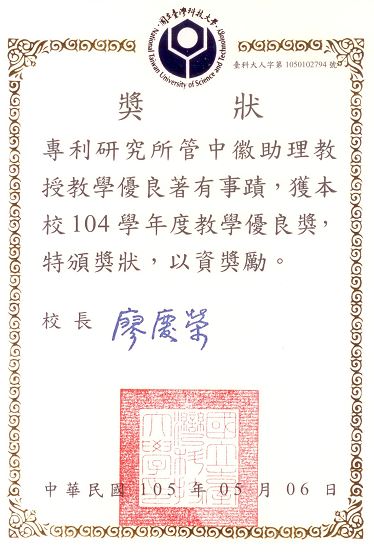 國立臺灣科技大學
National Taiwan University of Science and Technology
臺科大人字第 1050102794 號
獎 狀
專利研究所管中徽助理教
授教學優良著有事蹟，獲本
校104學年度教學優良獎，
特頒獎狀，以資獎勵。
校長 廖慶榮
國立臺灣科技大學印
中華民國 105 年 05 月 06 日